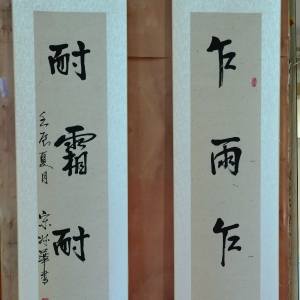 乍雨乍
耐霜耐
壬辰夏月 宗
華書